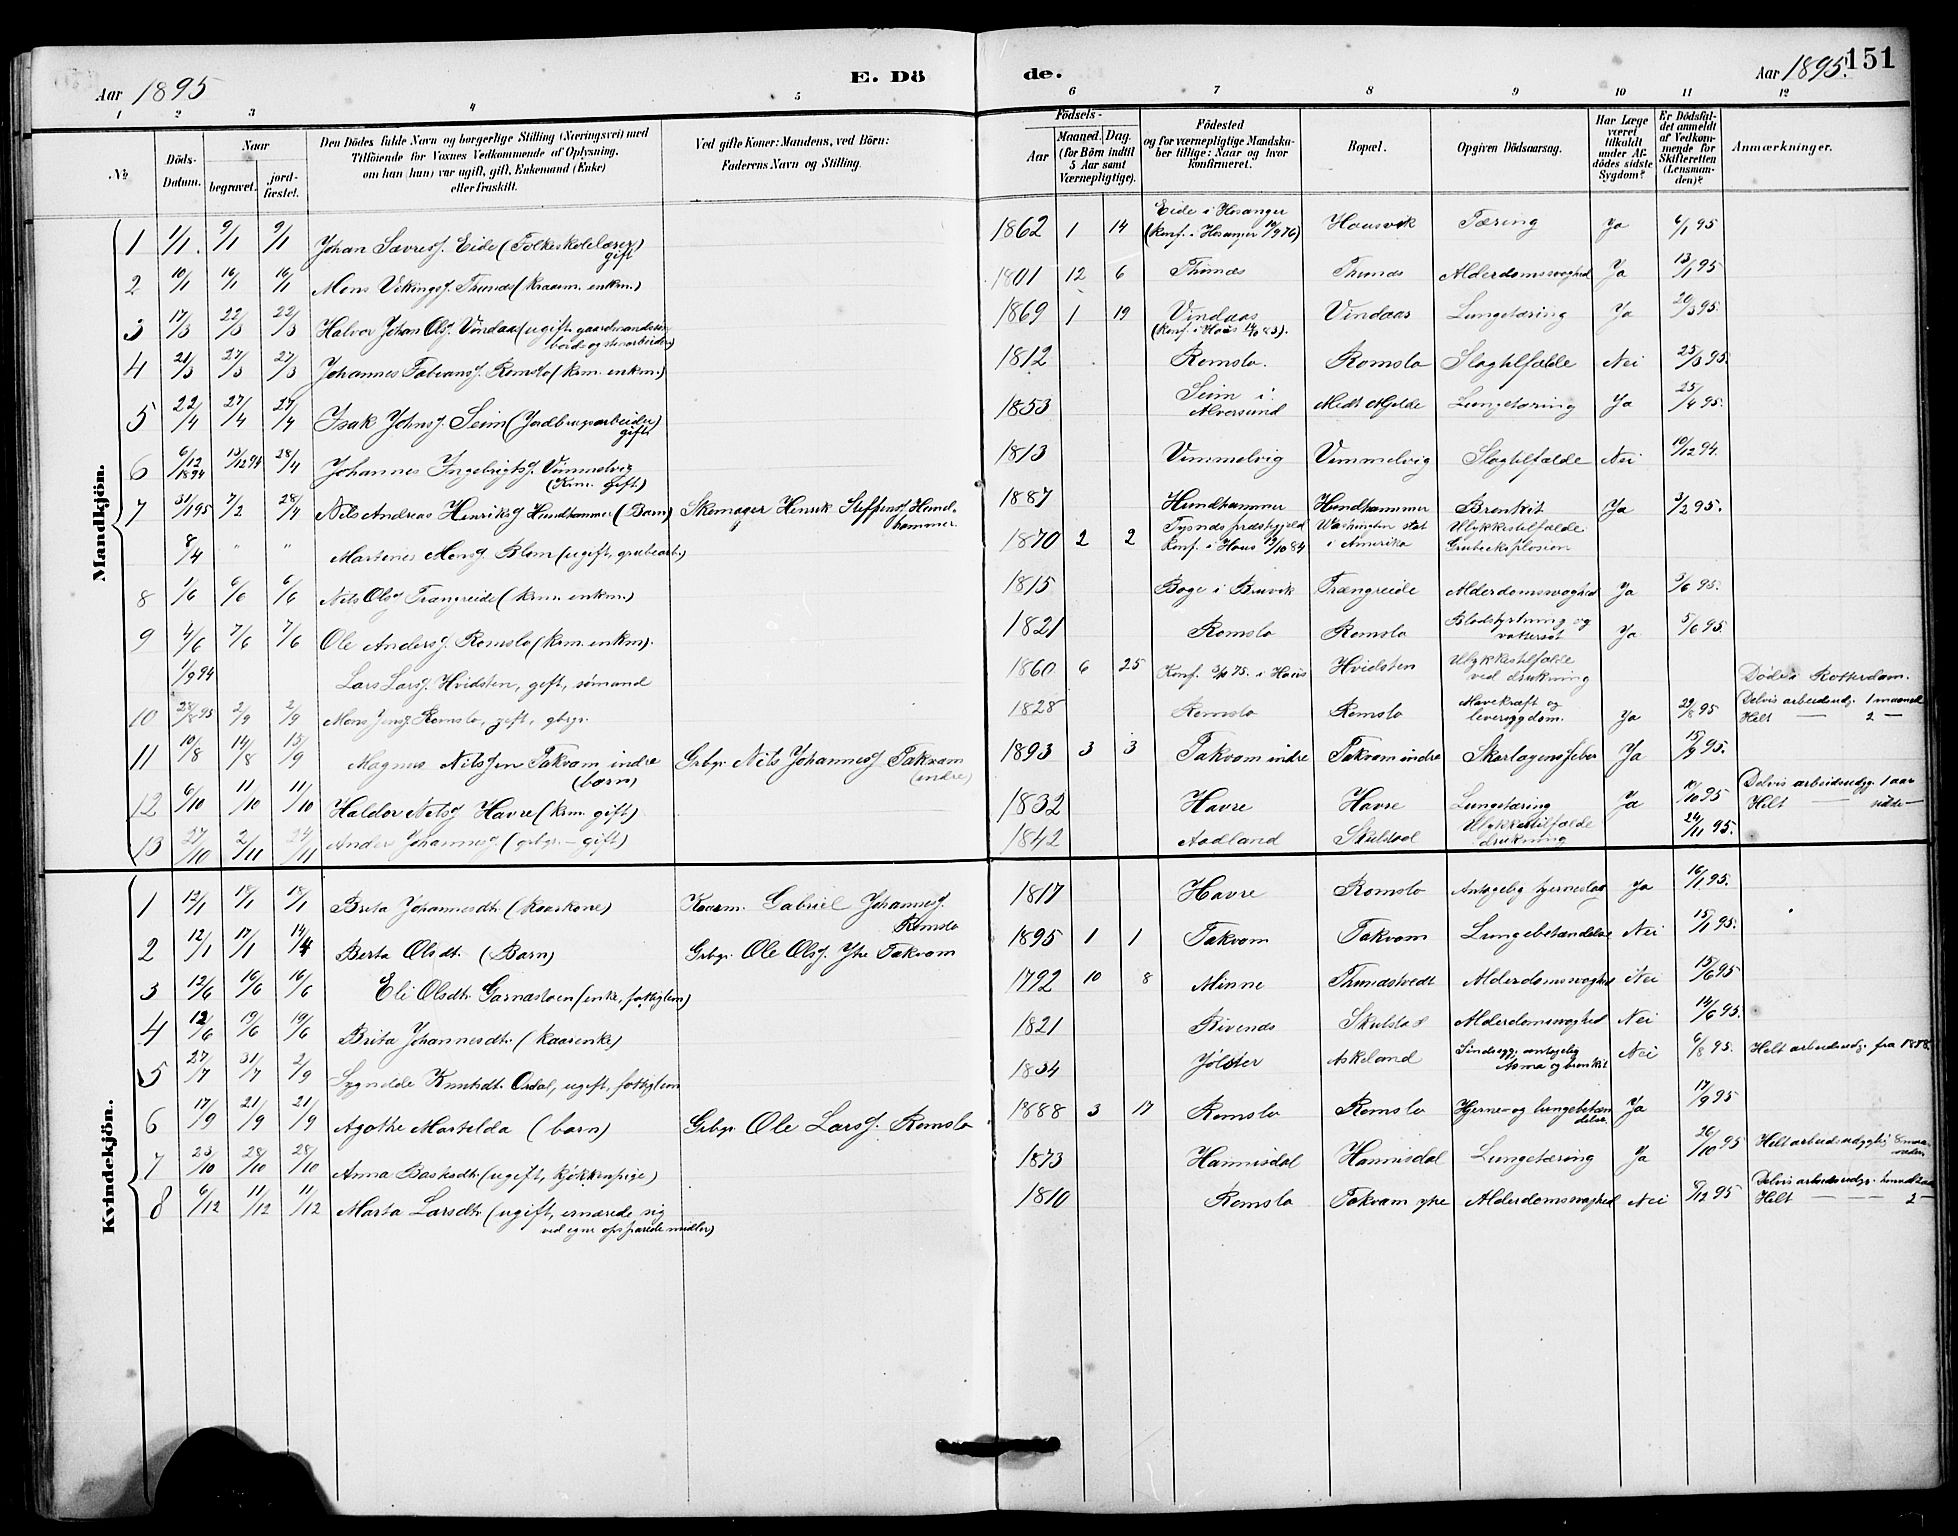 Aar 1895 E. Dö de. Aar 1895. 151
1 2 3 4 5 6 7 8 9 10 11 12
No
Döds-Datum.
Naar
begravet.
jord-fæstet.
Den Dödes fulde Navn og borgerlige Stilling (Næringsvei) med
Tilföiende for Voxnes Vedkommende af Oplysning,
om han (hun) var ugift, gift, Enkemand (Enke)
eller fraskilt.
Ved gifte Koner: Mandens, ved Börn:
Faderens Navn og Stilling.
Födsels-
Aar
Maaned. Dag.
(for Börn indtil
5 Aar samt
Værnepligtige).
Födested
og for værnepligtige Mandska-
ber tillige: Naar og hvor
konfirmeret.
Bopæl.
Opgiven Dödsaarsag.
Har Læge
været
tilkaldt
under Af-
dödes sidste
Sygdom?
Er Dödsfal-
det anmeldt
af Vedkom-
mende for
Skifteretten
(Lensman-
den)?
Anmærkninger.
Mandkjön.
1 1/1. 9/1 9/1 Johan Sævres. Eide (Folkeskolelærer) gift 1862 1 14 Eide i Hosanger (Konf. i Hosanger Housvik Tæring Ja 6/1 95
2 10/1 16/1 16/1 Mons Vikings. Thunæs (Kaarm. enkm.) 1801 12 6 Thunæs Thunæs Alderdomssvaghed Ja 13/1 95
3 17/3 22/3 22/3 Halvor Johan Ols. Vindaas (ugift, gaardmandssøn, 1869 1 19 Vindaas (Konf. i Haus 14/10 83). Vindaas Lungetæring Ja 20/3 95.
4 21/3 27/3 27/3 Johannes Fabians. Romslo (krm. enkm.) 1812 Romslo. Romslo Slagtilfælde Nei 25/3 95.
5 22/4 27/4 27/4 Isak Johns. Seim (Jordbrugsarbeider) gift 1853 Seim i Alversund Midt Mjelde Lungetæring Ja 25/4 95.
6 6/12 1894 13/12 94 28/4 Johannes Ingebrigts. Vimmelvig (Krm. gift.) 1813 Vimmelvig Vimmelvig Slagtilfælde Nei 10/12 94.
7 31/1 95 7/2 28/4 Nils Andreas Henriks. Hundhammer (Barn) Skomager Henrik Steffens. Hund-hammer. 1887 Hundhammer Hundhammer Bronkit Ja 3/2 95.
8/4 " " Martenes Mons. Blom (ugift, grubearb.) 1870 2 2 Tysnds præstegjeld Konf. i Haus 12/10 84 Washington stat i Amerika Ulykkestilfælde Grubeeksplosion
8 1/6 6/6 6/6 Nils Ols. Trængreide (krm. enkm.) 1815 Boge i Bruvik Trængreide Alderdomssvaghed Ja 3/6 95.
9 4/6 7/6 7/6 Ole Anders. Romslo (krm. enkm). 1821 Romslo Romslo Blodstyrtning og vattersot Ja 5/6 95.
1/9 94 Lars Lars. Hvidsten, gift, sømand 1860 6 25 Konf. 75. i Haus Hvidsten Ulykkestilfælde ved drukning Døde i Rotterdam.
10 28/8 95 2/9 2/9 Mons Jens. Romslo, gift, gbrgr. 1828 Romslo Romslo Mavekræft og leversygdom. Ja 29/8 95 Delvis arbeidsudg. 1 maaned Helt — 2 —
11 10/8 14/8 15/9 Magnus Nilssen Takvam indre (barn) Grbgr. Nils Johannes. Takvam (indre) 1893 3 3 Takvam indre Takvam indre Skarlagensfeber Ja 95.
12 6/10 11/10 11/10 Haldor Nils. Havre (krm. gift). 1832 Havre Havre Lungetæring Ja 10/10 95 Delvis arbeidsudyg. 1 aar Helt — sidste —
13 27/10 2/11 24/11 Anders Johannes. (grbgr. – gift) 1842 Aadland Skulstad Ulykkestilfælde drukning 24/11 95.
Kvindekjön.
1 12/1 18/1 18/1 Brita Johannesdt. (Kaarkone) Kaarm. Gabriel Johannes. Romslo 1817 Havre Romslo Antagelig hjerneslag Ja 16/1 95.
2 12/1 17/1 14/4 Berta Olsdt. (Barn) Grbgr. Ole Ols. Ytre Takvam 1895 1 1 Takvam Takvam Lungebetændelse Nei 15/1 95.
3 12/6 16/6 16/6 Eli Olsdt. Garnastøen (enke, fattiglem) 1792 10 8 Minne Thunestvedt Alderdomssvaghed Nei 15/6 95
4 12/6 19/6 19/6 Brita Johannesdt. (kaarenke) 1821 Rivends Skulstad Alderdomssvaghed Nei 14/6 95.
5 27/7 31/7 2/9 Sygnelde Knutsdt. Ordal, ugift, fattiglem 1834 Jølster Askeland Sindssyg; antagelig Asma og bronkit Nei 6/8 95. Helt arbeidsudyg. fra 1858.
6 17/9 21/9 21/9 Agothe Martelda (barn) Grbgr. Ole Lars. Romslo 1888 3 17 Romslo Romslo Hjerne- og lungebetæn-delse. Ja 17/9 95
7 23/10 28/10 28/10 Anna Baskdt. (ugift, kjøkkenpige) 1873 Hannisdal Hannisdal Lungetæring Ja 26/10 95 Helt arbeidsudygtig 8 maa-neder
8 6/12 11/12 11/12 Marta Larsdt. (ugift, ernærede sig ved egne opsparede midler) 1810 Romslo Takvam ytre Alderdomssvaghed Nei /12 95 Delvis arbeidsudyg. Helt — — 2 —